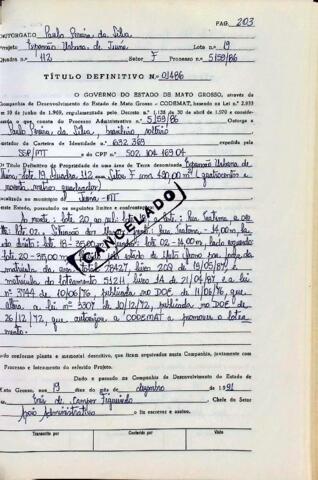 PAG. 203
OUTORGADO Paulo Pereira da Silva
Projeto Expansão Urbana de Juína Lote n.o 19
Quadra n.o 112 Setor F Processo n.o 5159/86
TÍTULO DEFINITIVO N.o 01486
O GOVERNO DO ESTADO DE MATO GROSSO, através da
Companhia de Desenvolvimento do Estado de Mato Grosso - CODEMAT, baseado na Lei n.o
de 10 de junho de 1.969, regulamentada pelo Decreto n.o 1.138 de 30 de abril de 1.970 e considerando
o que consta do Processo Administrativo n.o 5159/86 Outorga a
Paulo Pereira da Silva, brasileiro, solteiro
Carteira de Identidade n.o 632 363 expedida pela
SSP/MT e do CPF n.o 502 104 469 04
O Título Definitivo de Propriedade de uma área de Terra denominada Expansão Urbana de
Juína, lote 19, Quadra 112 Setor F 490,00 m² (quatrocentos e
noventa metros quadrados)
localizada no município de Juína-MT
deste Estado, possuindo os seguintes limites e confrontações:
CANCELADO
Ao norte: lote 20 ao sul: lote
lote 02. Situação
direito: lote 18-35,00 lote 02-14,00m, lado esquerdo
lote 20-35,00
matrícula 28427, livro 209 de 19/05/87 e
matrícula do loteamento 512H livro 1A de 21/04/87 e a lei
nº 3744 de 10/06/76, publicada no DOE de 11/06/76, que
altera a lei nº 3307 de 10/12/72, publicada no DOE de
26/12/72, que autoriza a CODEMAT a promover o lotea
mento.
Tudo conforme planta e memorial descritivo, que ficam arquivados nesta Companhia, juntamente com
Processo e loteamento do referido Projeto.
Dado e passado na Companhia de Desenvolvimento do Estado de
Mato Grosso, aos 19 dias do mês de dezembro de 1991
Eu de Campos Figueiredo Chefe do Setor
Apoio Administrativo o fiz escrever e assino.
Transcrito por Conferido por Visto